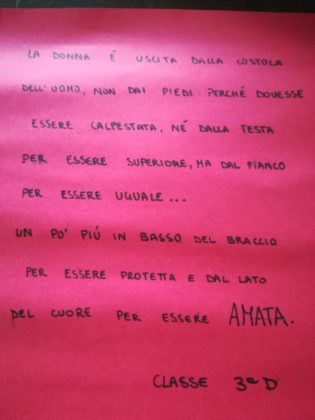 LA DONNA É USCITA DALLA COSTOLA
DELL'UOMO, NON DAI PIEDI PERCHÉ DOVESSE
ESSERE CALPESTATA, NÉ DALLA TESTA
PER ESSERE SUPERIORE, MA DAL FIANCO
PER ESSERE UGUALE...
UN PO' PIÚ IN BASSO DEL BRACCIO
PER ESSERE PROTETTA E DAL LATO
DEL CUORE PER ESSERE AMATA.
CLASSE 3ª D